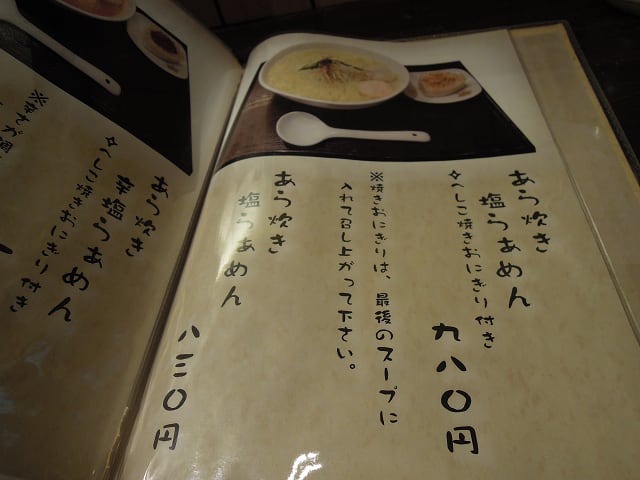 あら炊き
塩らぁめん
✧へしこ焼きおにぎり付き
九八〇円
※焼きおにぎりは、最後のスープに
入れて召し上がって下さい。
あら炊き
塩らぁめん
八三〇円
あら炊き
辛塩らぁめん
✧へしこ焼きおにぎり付き
※辛さが調